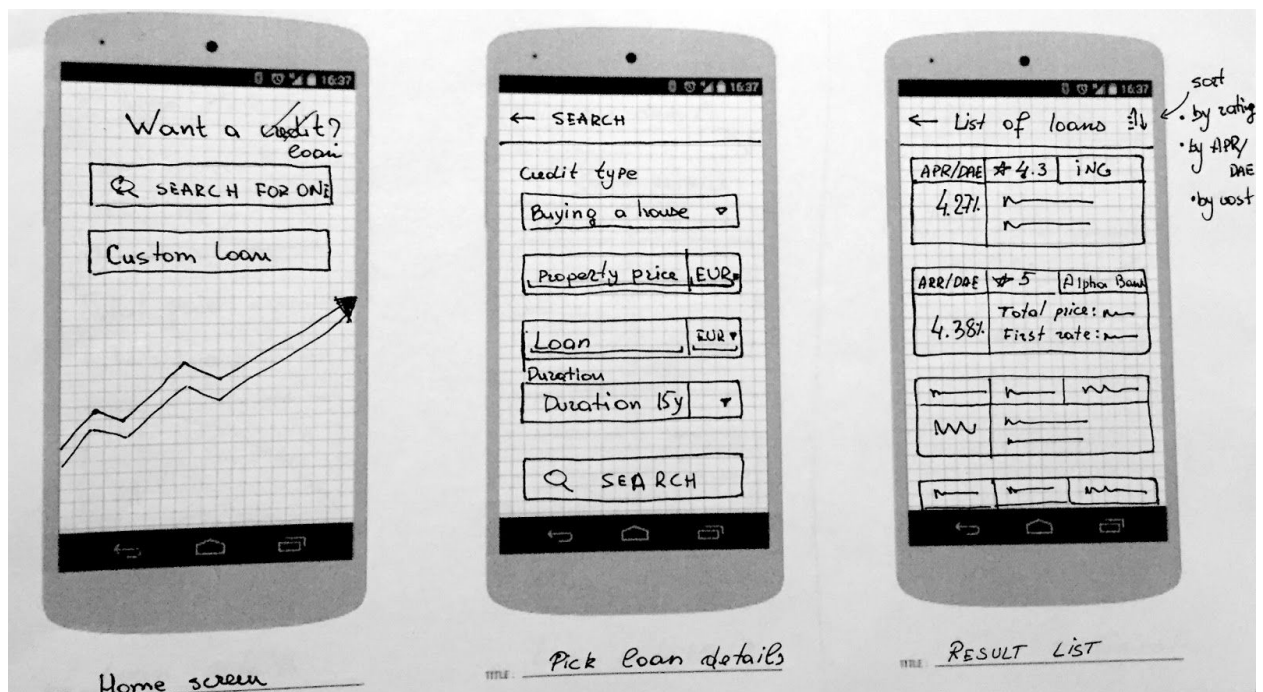 16:37
Want a credit?
loan
SEARCH FOR ONE
Custom Loan
Home screen
16:37
← SEARCH
Credit type
Buying a house
Property price EUR
Loan EUR
Duration
Duration 15y
SEARCH
TITLE: Pick loan details
16:37
← List of loans
sort
• by rating
• by APR/
DAE
• by cost
APR/DAE ☆ 4.3 ING
4.27%
APR/DAE ☆ 5 Alpha Bank
4.38% Total price:
First rate:
TITLE: RESULT LIST